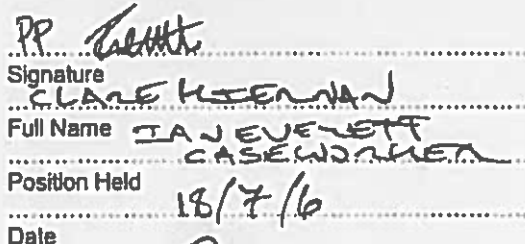 PP
Signature
CLARE KIERNAN
Full Name IAN EVERETT
CASEWORKER
Position Held
18/7/6
Date